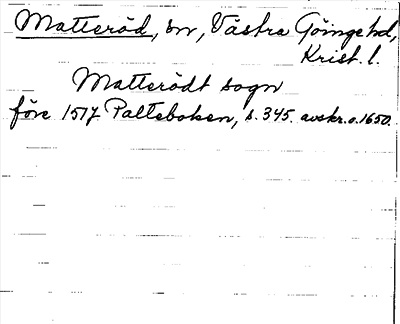 Matteröd, sn, Västra Göinge hd,
Krist. l.
Matterödt sogn
före 1517 Palteboken, s. 345. avskr. o. 1650.